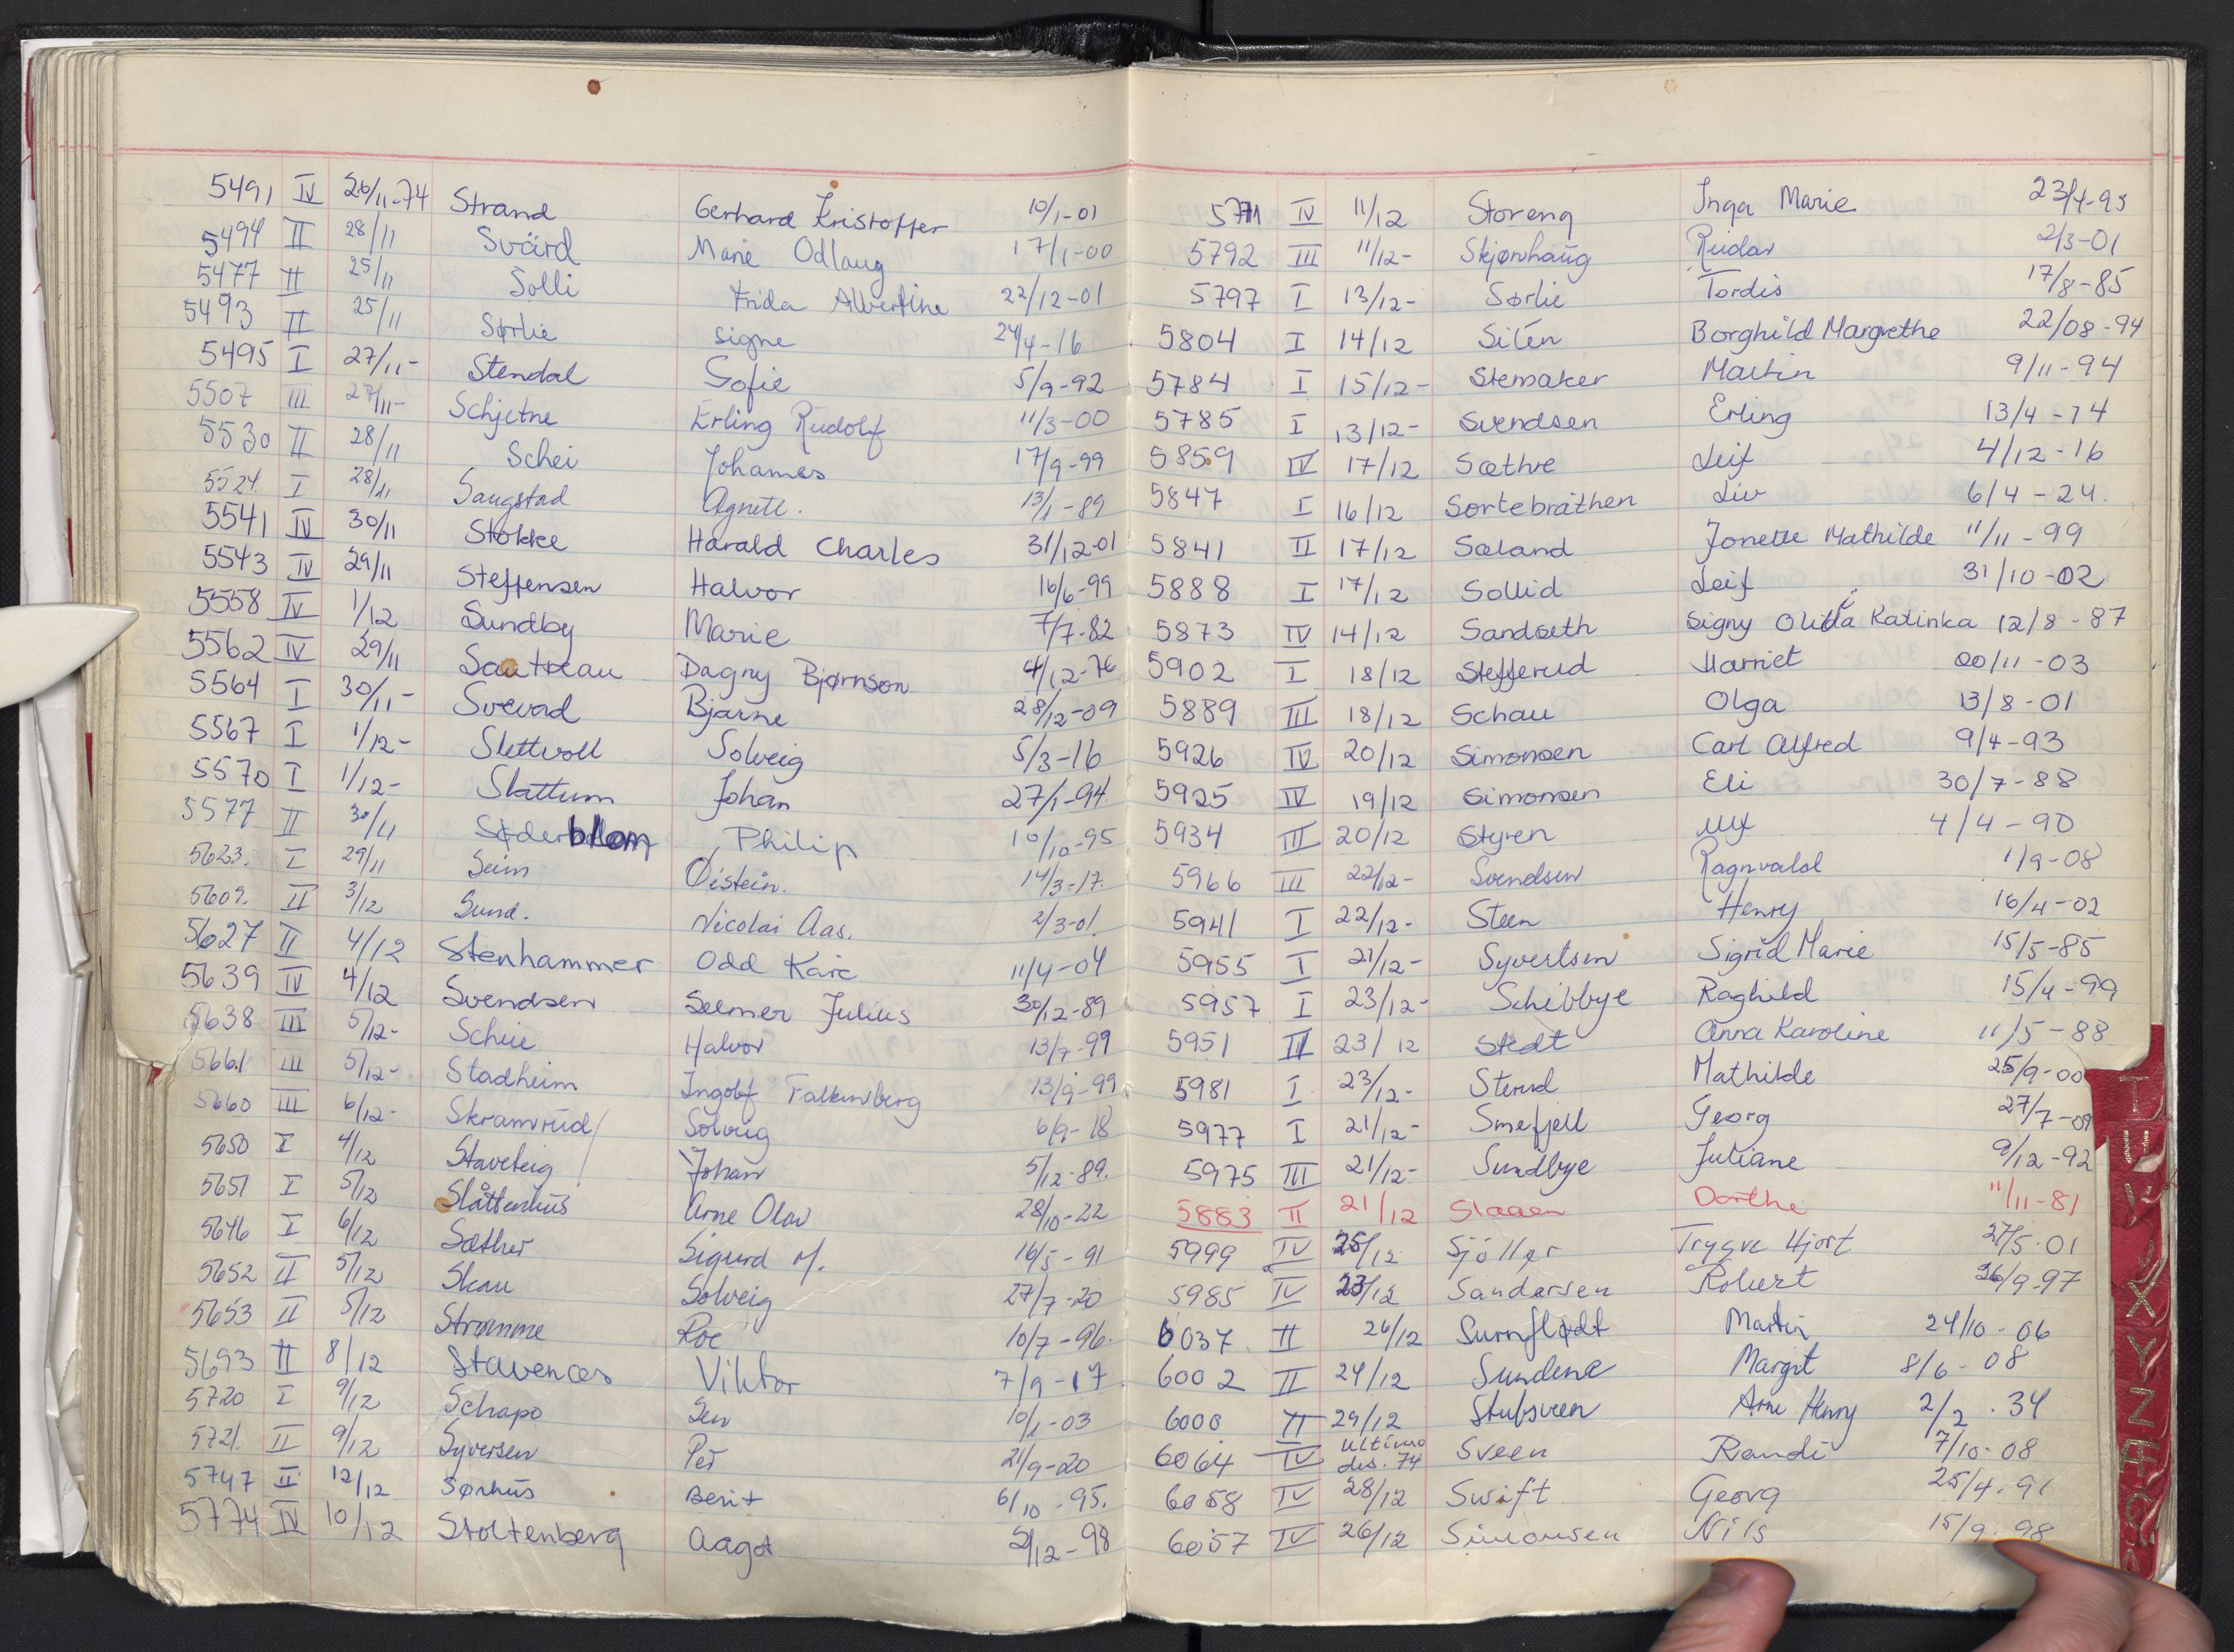 5491 IV 26/11-74 Strand Gerhard Kristoffer 10/1-01
5494 II 28/11 Svärd Marie Odlaug 17/1-00
5477 II 25/11 Solli Frida Albertine 22/12-01
5493 II 25/11 Sørlie Signe 24/4-16
5495 I 27/11- Stendal Sofie 5/9-92
5507 III 27/11- Schjetne Erling Rudolf 11/3-00
5530 II 28/11 Schei Johannes 17/9-99
5524. I 28/11 Saugstad Agnete. 13/1-89
5541 IV 30/11 Stokke Harald Charles 31/12-01
5543 IV 29/11 Steffensen Halvor 16/6-99
5558 IV 1/12 Sundby Marie 7/7-82
5562 IV 29/11 Sautreau Dagny Bjørnson 4/12-76
5564 I 30/11- Svevad Bjarne 28/12-09
5567 I 1/12- Slettvoll Solveig 5/3-16
5570 I 1/12- Slattum Johan 27/1-94
5577 II 30/11 Søderblom Philip 10/10-95
5623. I 29/11 Seim Øistein. 14/3-17.
5609. II 3/12 Sund. Nicolai Aas. 2/3-01.
5627 II 4/12 Stenhammer Odd Kåre 11/4-04
5639 IV 4/12 Svendsen Selmer Julius 30/12-89
5638 III 5/12- Scheie Halvor 13/7-99
5661 III 5/12- Stadheim Ingolf Falkenberg 13/9-99
5660 III 6/12- Skramrud Solveig 6/9-18
5650 I 4/12 Staveteig Johan 5/12-89.
5651 I 5/12 Slåttenhus Arne Olav 28/10-22
5646 I 6/12 Sæther Sigurd M. 16/5-91
5652 II 5/12 Skau Solveig 27/7-20
5653 II 5/12 Strømme Roe 10/7-96.
5693 II 8/12 Stavenæs Viktor 7/9-17
5720 I 9/12 Schapo 10/1-03
5721. II 9/12 Syversen Per 21/9-20
5747 II 12/12 Sørhus Berit 6/10-95.
5774 IV 10/12 Stoltenberg Aagot 2/12-98
5771 IV 11/12 Storeng Inga Marie 23/4-95
5792 III 11/12- Skjønhaug Reidar 2/3-01
5797 I 13/12- Sørlie Tordis 17/8-85
5804 I 14/12 Silén Borghild Margrethe 22/08-94
5784 I 15/12- Stemaker Martin 9/11-94
5785 I 13/12- Svendsen Erling 13/4-14
5859 IV 17/12 Sæthre Leif 4/12-16
5847 I 16/12 Sortebråthen Liv 6/4-24.
5841 II 17/12 Sæland Jonette Mathilde 11/11-99
5888 I 17/12 Sollid Leif 31/10-02
5873 IV 14/12 Sandseth Signy Katinka 12/8-87
5902 I 18/12 Stefferud Harriet 20/11-03
5889 III 18/12 Schau Olga 13/8-01
5926 IV 20/12 Simonsen Carl Alfred 9/4-93
5925 IV 19/12 Simonsen Eli 30/7-88
5934 III 20/12 Styren Ulf 4/4-90
5966 III 22/12- Svendsen Ragnvald 1/9-08
5941 I 22/12- Steen Henry 16/4-02
5955 I 21/12- Syvertsen Sigrid Marie 15/5-85
5957 I 23/12- Schibbye Raghild 15/4-99
5951 II 23/12 Stedt Anna Karoline 11/5-88
5981 I 23/12- Sterud Mathilde 25/9-00
5977 I 21/12- Smefjell Georg 27/7-09
5975 III 21/12- Sundbye Juliane 9/12-92
5883 II 21/12 Slaaen Dorthe 11/11-81
5999 IV 25/12 Sjöller Trygve Hjort 27/5-01
5985 IV 23/12 Sandersen Robert 26/9-97
6037 II 26/12 Surnflødt Martin 24/10-06
6002 II 24/12 Sundene Margit 8/6-08
6000 II 29/12 Stubsveen Arne Henry 2/2.34
6064 IV Ultimo des. 74 Sveen Randi 7/10-08
6058 IV 28/12 Swift Georg 25/4.91
6057 IV 26/12 Simonsen Nils 15/9-98
T
U
V
X
Y
Z
Æ
Ø